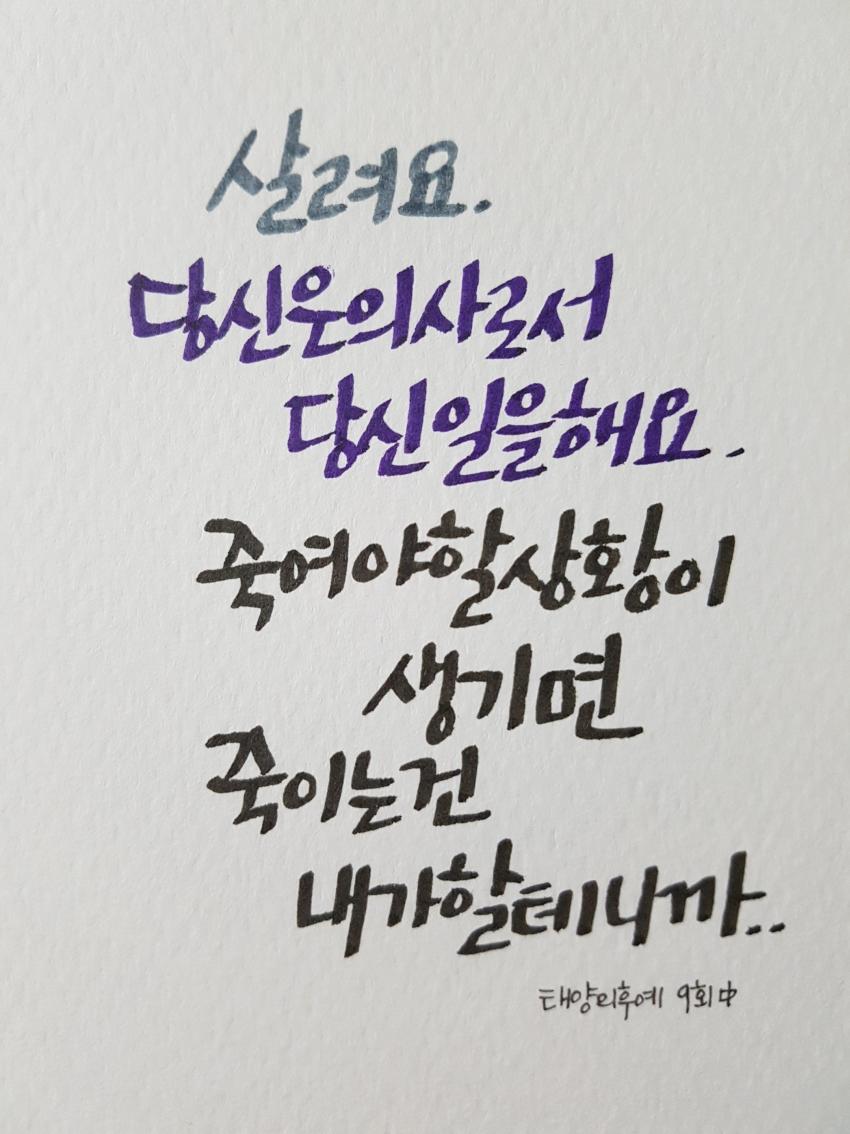 살려요.
당신은의사로서
당신일을해요.
죽여야할상황이
생기면
죽이는건
내가할테니까..
태양의후예 9회中